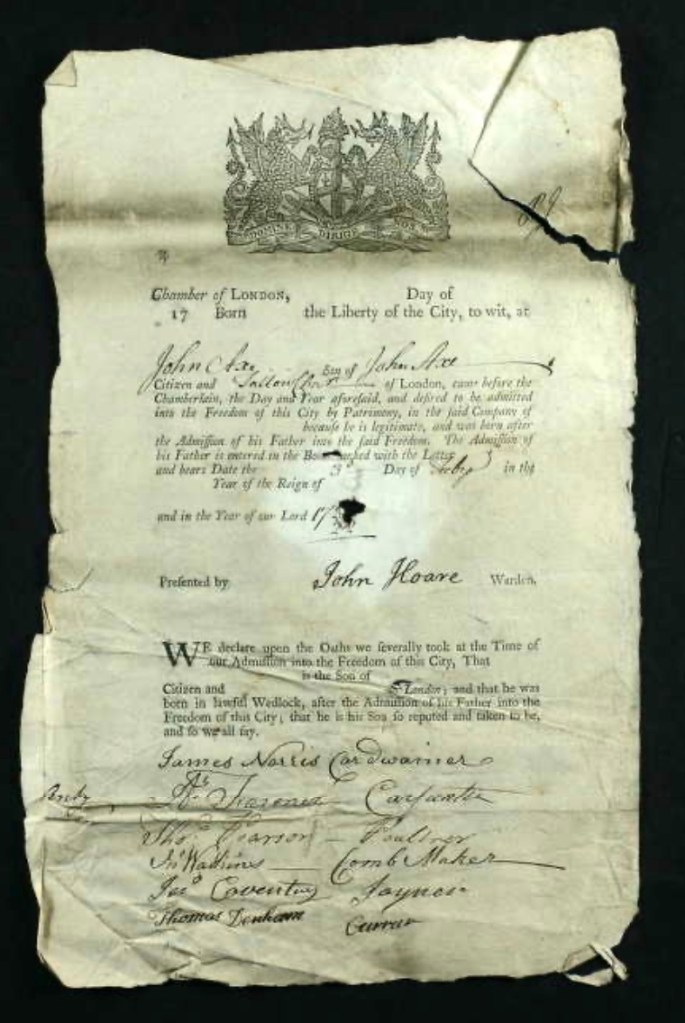 DOMINE DIRIGE NOS
Chamber of LONDON, Day of
17 Born the Liberty of the City, to wit, at
John Axe Son of John Axe
Citizen and of London, came before the
Chamberlain, the Day and Year aforesaid, and desired to be admitted
into the Freedom of this City by Patrimony, in the said Company of
because he is legitimate, and was born after
the Admission of his Father into the said Freedom. The Admission of
his Father is entered in the Book with the Letter
and bears Date the 3 Day of in the
Year of the Reign of
and in the Year of our Lord 17
Presented by John Hoare Warden.
WE declare upon the Oaths we severally took at the Time of
our Admission into the Freedom of this City, That
is the Son of
Citizen and of London; and that he was
born in lawful Wedlock, after the Admission of his Father into the
Freedom of this City; that he is his Son so reputed and taken to be,
and so we all say.
James Norris Cordwainer
Carpenter
Thos Pearson Poulterer
Jno Watkins Comb Maker
Jos Coventry Joyner
Thomas Denham Currier